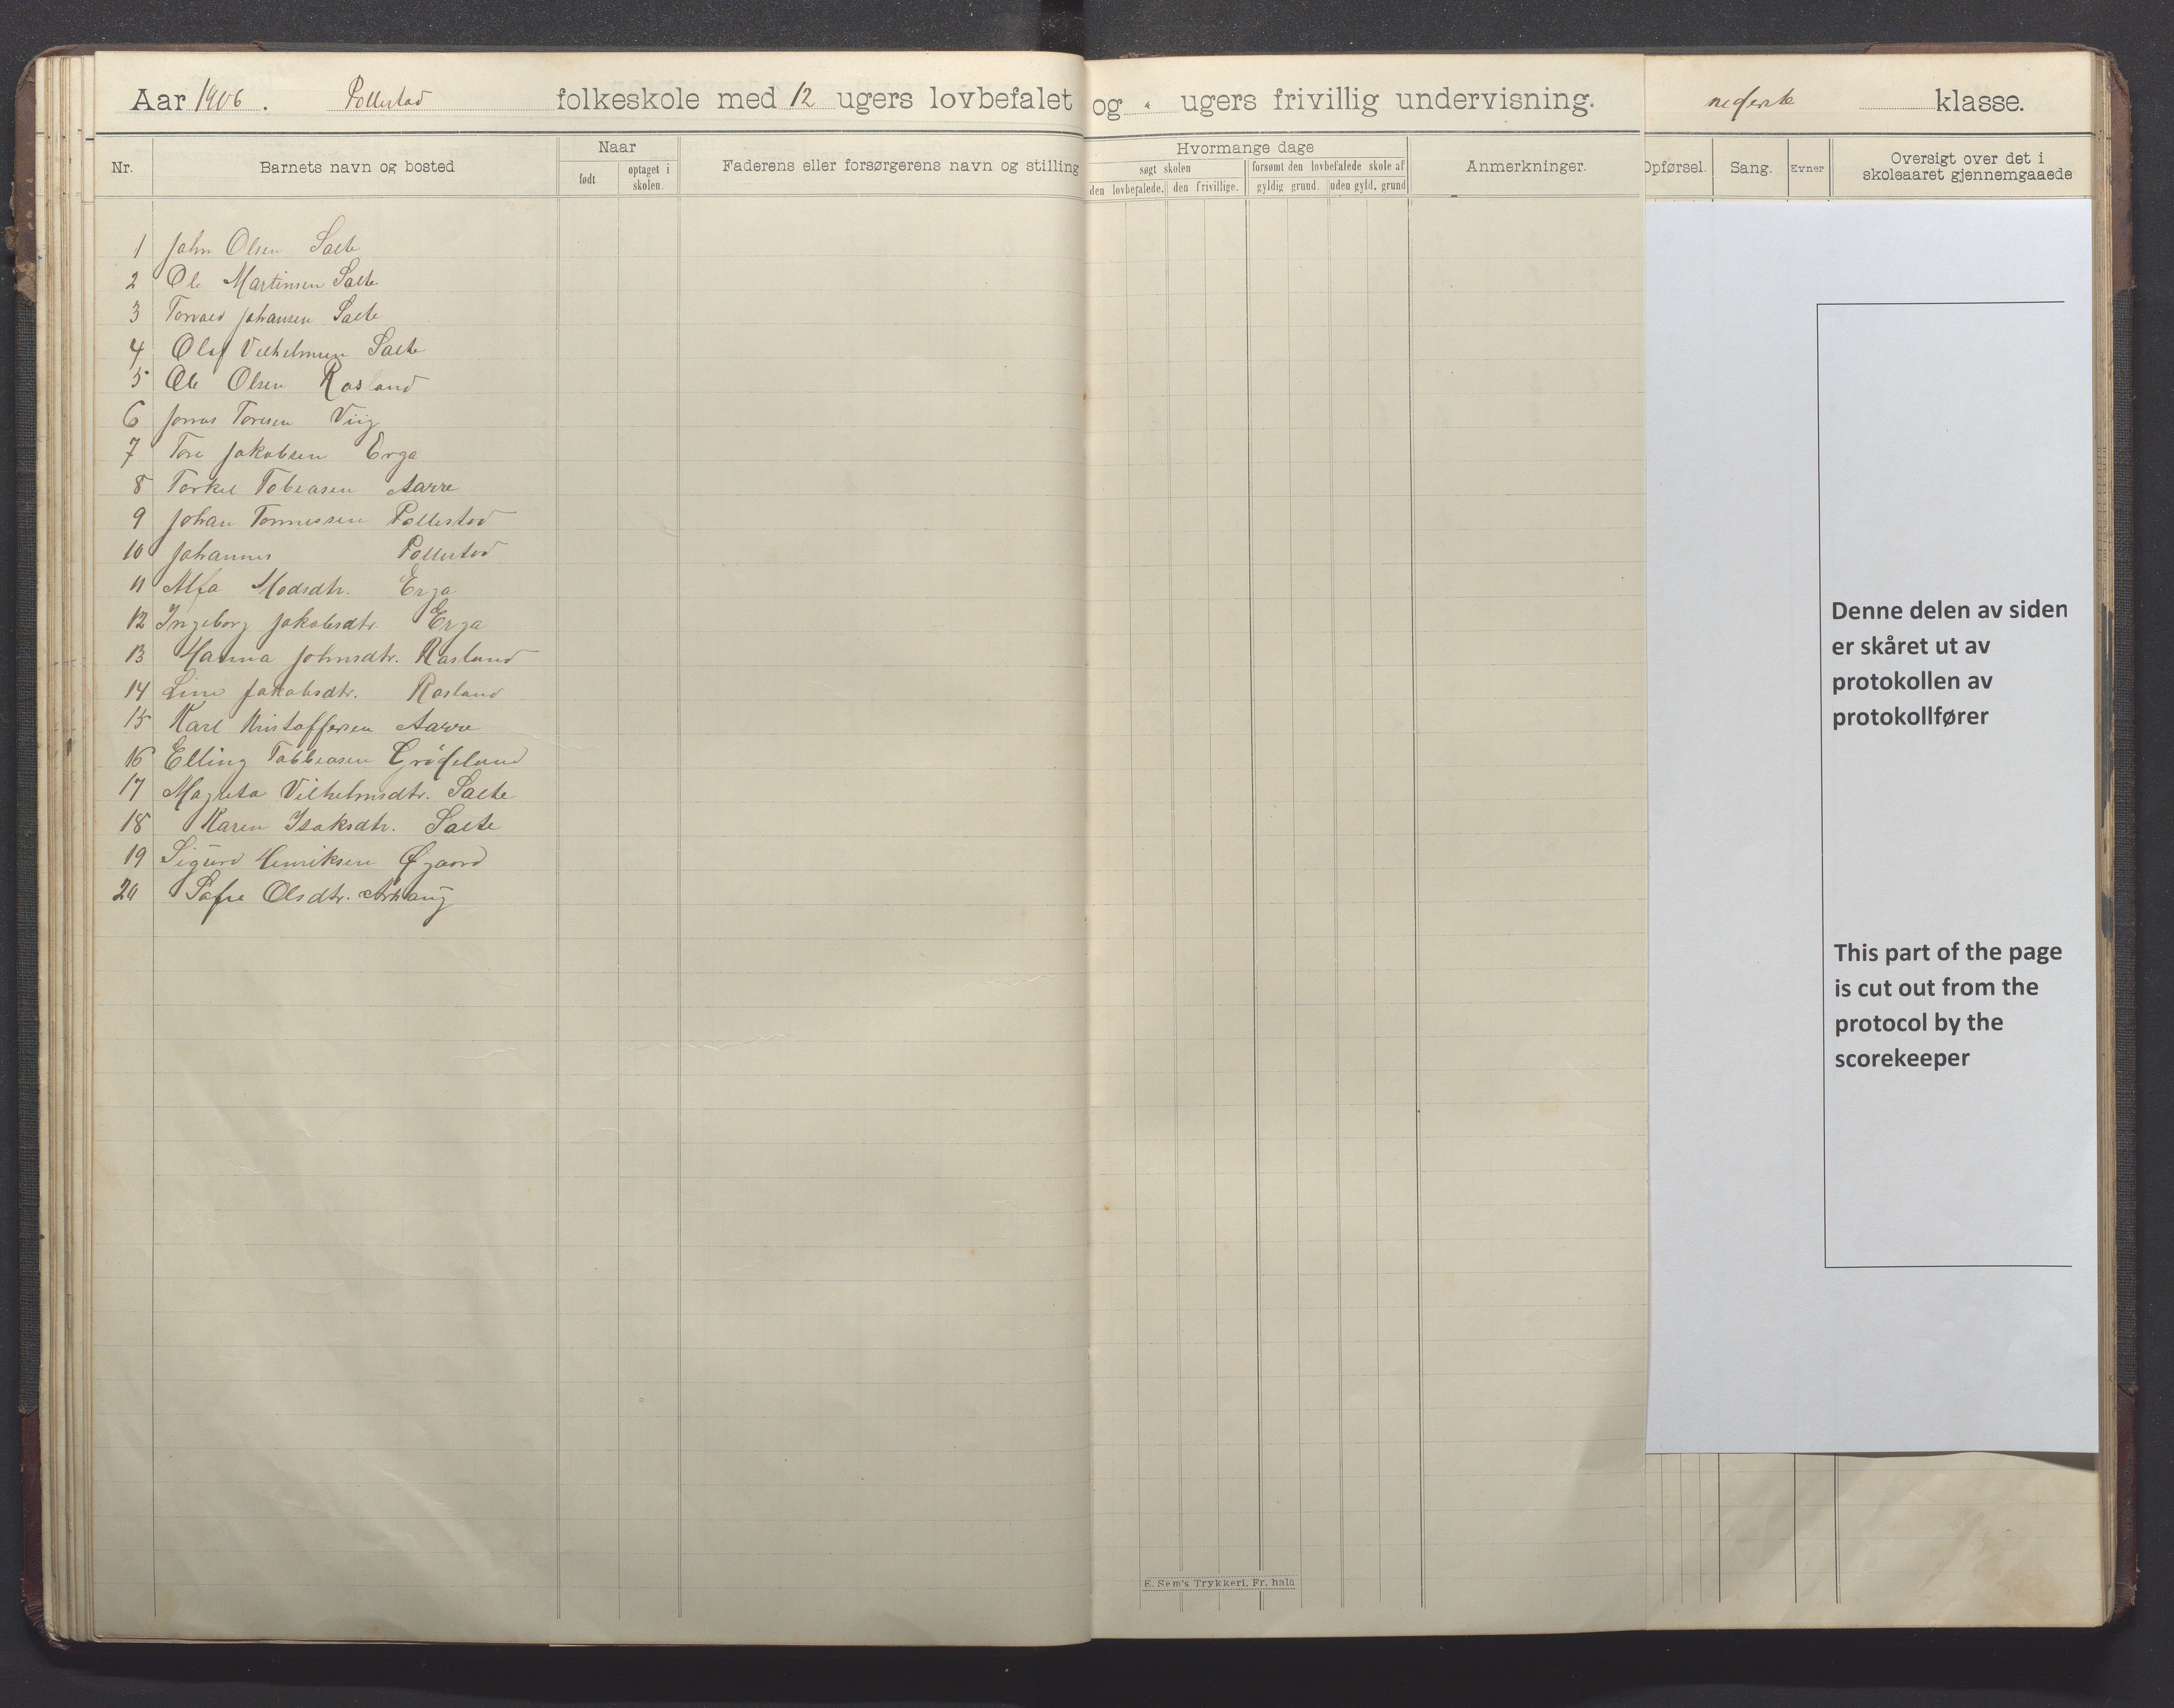 Aar 1906. Pollestad folkeskole med 12 ugers lovbefalet og " ugers frivillig undervisning. nederste klasse.
Nr. Barnets navn og bosted Naar født optaget i skolen. Faderens eller forsørgerens navn og stilling Hvormange dage søgt skolen den lovbefalede. den frivillige. forsømt den lovbefalede skole af gyldig grund. uden gyld. grund Anmerkninger. Opførsel. Sang. Evner Oversigt over det i skoleaaret gjennemgaaede
1 John Olsen Salte
2 Ole Martinsen Salte
3 Torvald Johansen Salte
4 Olaf Vilhelmsen Salte
5 Ole Olsen Rosland
6 Jonas Toresen Viig
7 Tore Jakobsen Erga
8 Torkel Tobiasen Aarre
9 Johan Tønnessen Pollestad
10 Johannes Pollestad
11 Alfa Madsdtr. Erga
12 Ingeborg Jakobsdtr. Erga
13 Hanna Johnsdtr. Rosland
14 Line Jakobsdtr. Rosland
15 Karl Kristoffersen Aarre
16 Elling Tobbiasen Grødeland
17 Magreta Vilhelmsdtr. Salte
18 Karen Isaksdtr. Salte
19 Sigurd Henriksen Øgaard
20 Sofie Olsdtr.
Denne delen av siden
er skåret ut av
protokollen av
protokollfører
This part of the page
is cut out from the
protocol by the
scorekeeper
E. Sem's Trykkeri, Fr. hald